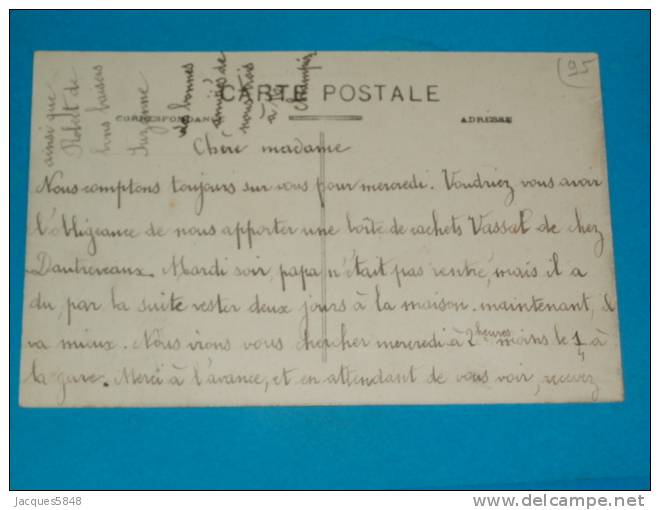 94
CARTE POSTALE
CORRESPONDANCE
ADRESSE
Chère madame
Nous comptons toujours sur vous pour mercredi. Voudriez vous avoir
l'obligeance de nous apporter une boîte de cachets Vassal de chez
Dautrevaux. Mardi soir, papa n'était pas rentré, mais il a
du, par la suite rester deux jours à la maison. maintenant, il
va mieux. Nous irons vous chercher mercredi à 2 heures moins le 1/4 à
la gare. Merci à l'avance, et en attendant de vous voir, recevez
les bonnes
amitiés de
nous trois
à Mr
Champix
ainsi que
Robert de
bons baisers
Suzanne
Jacques5848
www.delcampe.net